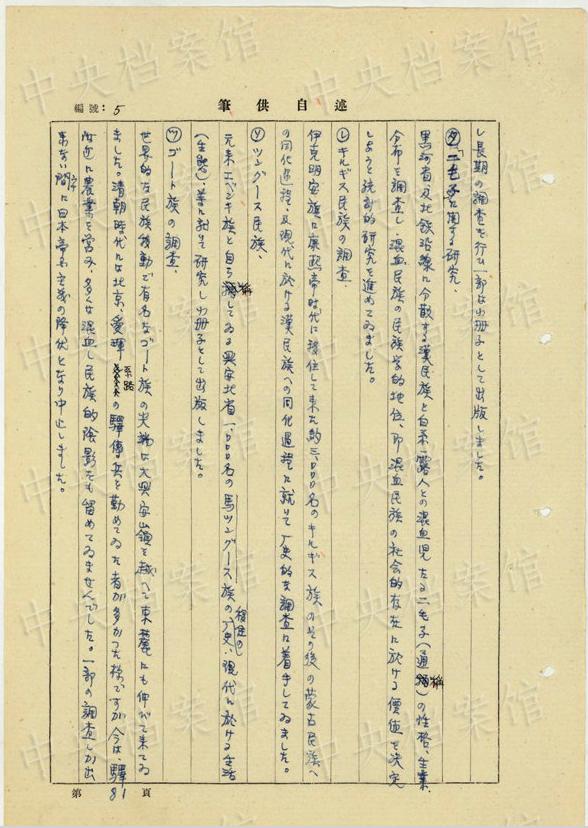 筆供自述
編號：5
し長期の調査を行ひ一部は小冊子として出版しました。
㋟「二毛子」に関する研究、
黒河省及北鉄沿線に分散する漢民族と白系露人との混血児たる二毛子（通称）の性格、生業、
分布を調査し、混血民族の民族学的地位、即混血民族の社会的存在に於ける価値を決定
しようと統計的研究を進めてゐました。
㋹キルギス民族の調査
伊克明安旗に康熙帝時代に移住して来た約三、〇〇〇名のキルギス族のその後の蒙古民族へ
の同化過程、及現代に於ける漢民族への同化過程に就いて歴史的な調査に着手してゐました。
㋞ツングース民族、
元来エベンキ族と自ら称してゐる興安北省一、〇〇〇名の馬ツングース族の移住の歴史、現代に於ける生活
（生態）等に就て研究し小冊子として出版しました。
㋡ゴート族の調査、
世界的な民族移動で有名なゴート族の支端は大興安嶺を越へて東麓にも伸びて来てゐ
ました。清朝時代には北京、愛琿系路の驛傳夫を勤めてゐた者が多かつた様ですが今は、驛
附近に農業を営み、多くは混血し民族的陰影をも留めてゐませんでした。一部の調査しか出
来ない間に日本帝国主義の降伏となり中止しました。
第 81 頁
中央档案馆